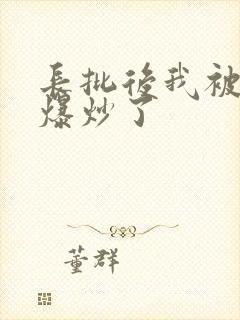 長批後我被
爆炒了
董群